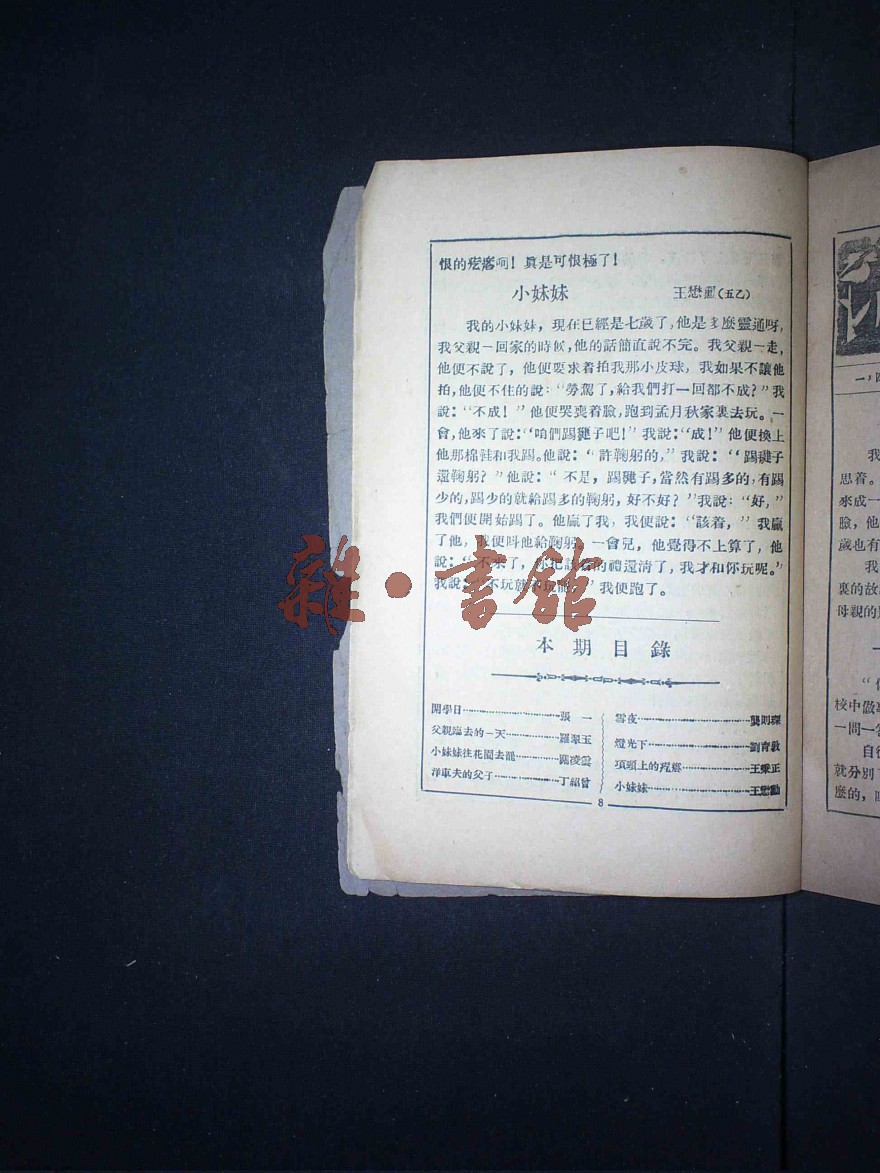 恨的疙瘩呵！真是可恨極了！
小妹妹 王懋勳（五乙）
我的小妹妹，現在已經是七歲了，他是多麽靈通呀，
我父親一回家的時候，他的話簡直說不完。我父親一走，
他便不說了，他便要求着拍我那小皮球，我如果不讓他
拍，他便不住的說：“勞駕了，給我們打一回都不成？”我
說：“不成！”他便哭喪着臉，跑到孟月秋家裏去玩。一
會，他來了說：“咱們踢毽子吧！”我說：“成！”他便換上
他那棉鞋和我踢。他說：“許鞠躬的，”我說：“踢毽子
還鞠躬？”他說：“不是，踢毽子，當然有踢多的，有踢
少的，踢少的就給踢多的鞠躬，好不好？”我說：“好，”
我們便開始踢了。他贏了我，我便說：“該着，”我贏
了他，我便叫他給鞠躬。一會兒，他覺得不上算了，他
說：“不來了，你把該着的禮還清了，我才和你玩呢。”
我說：“不玩就不玩罷，”我便跑了。
本期目錄
開學日 張一
父親臨去的一天 羅翠玉
小妹妹往花園去罷 凌雲
洋車夫的父子 丁紹曾
雪夜 龔則琛
燈光下 劉育敦
項頭上的疙瘩 王秉正
小妹妹 王懋勳
8
雜·書館
我
思着。
來成一
臉，他
歲也有
我
裏的故
母親的
一
“
校中做
一問一答
自從
就分別了
麽的，